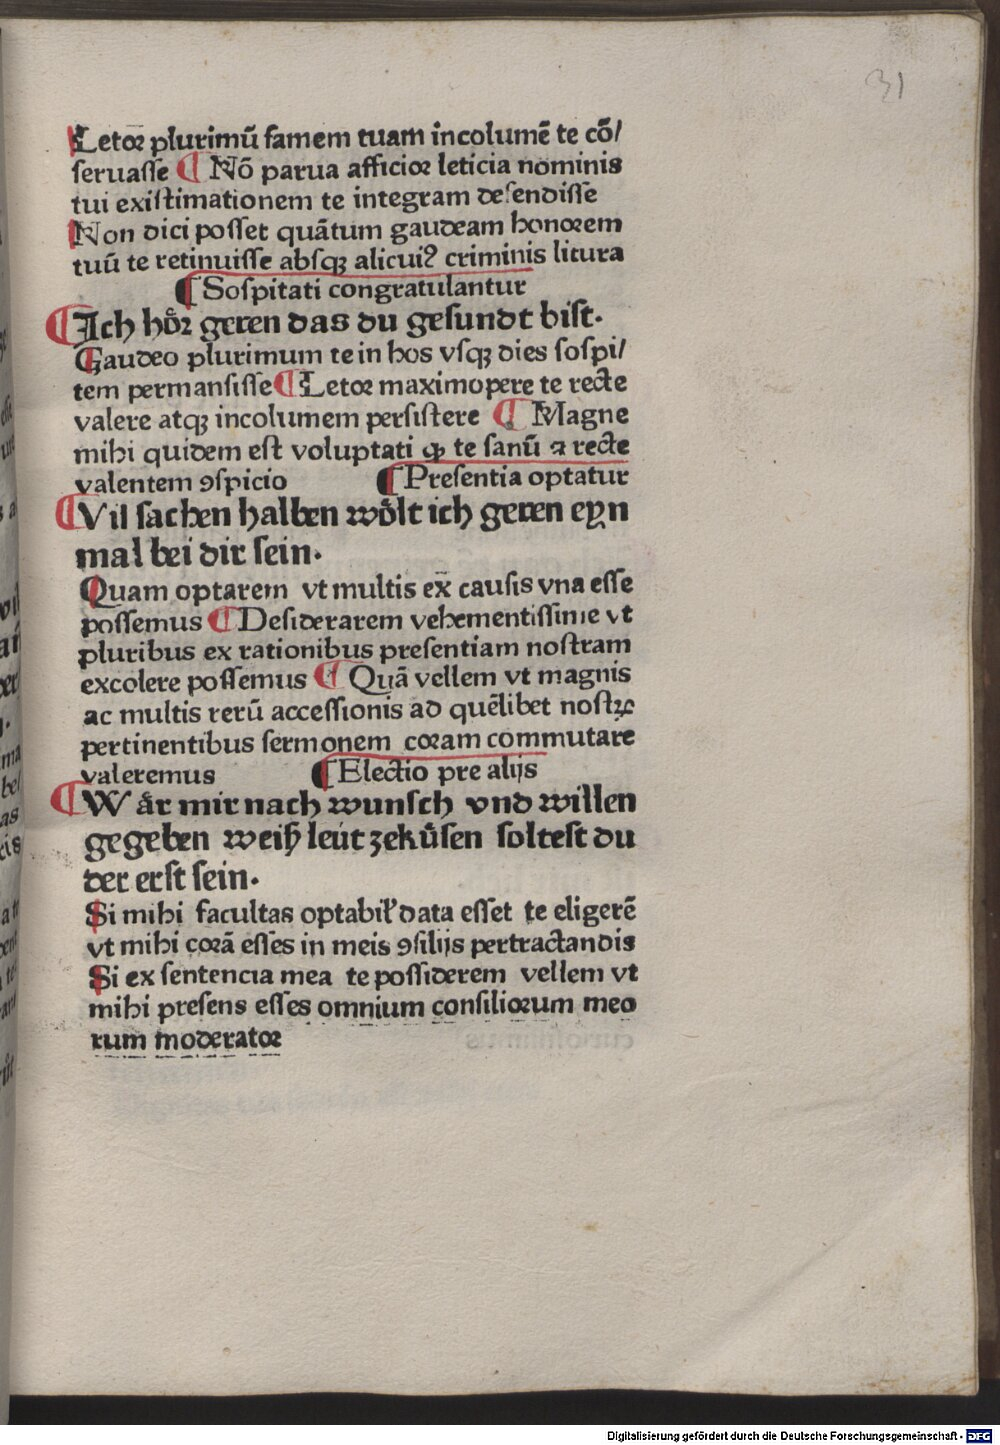 31
Letor plurimū famem tuam incolumē te cō/
seruasse ¶ Nō parua afficior leticia nominis
tui existimationem te integram defendisse
Non dici posset quātum gaudeam honorem
tuū te retinuisse absqꝫ alicuiꝰ criminis litura
¶ Sospitati congratulantur
¶ Ich hoͤr geren das du gesundt bist.
Gaudeo plurimum te in hos vsqꝫ dies sospi/
tem permansisse ¶ Letor maximopere te recte
valere atqꝫ incolumem persistere ¶ Magne
mihi quidem est voluptati ꝙ te sanū ⁊ recte
valentem ꝯspicio ¶ Presentia optatur
¶ Vil sachen halben woͤlt ich geren eyn
mal bei dir sein.
Quam optarem vt multis ex̄ causis vna esse
possemus ¶ Desiderarem vehementissime vt
pluribus ex rationibus presentiam nostram
excolere possemus ¶ Quā vellem vt magnis
ac multis rerū accessionis ad quēlibet nostꝝ
pertinentibus sermonem coram commutare
valeremus ¶ Electio pre alijs
¶ Waͤr mir nach wunsch vnd willen
gegeben weiß leut zekuͤsen soltest du
der erst sein.
Si mihi facultas optabił data esset te eligerē
vt mihi corā esses in meis ꝯsilijs pertractandis
Si ex sentencia mea te possiderem vellem vt
mihi presens esses omnium consiliorum meo
rum moderator
Digitalisierung gefördert durch die Deutsche Forschungsgemeinschaft - DFG